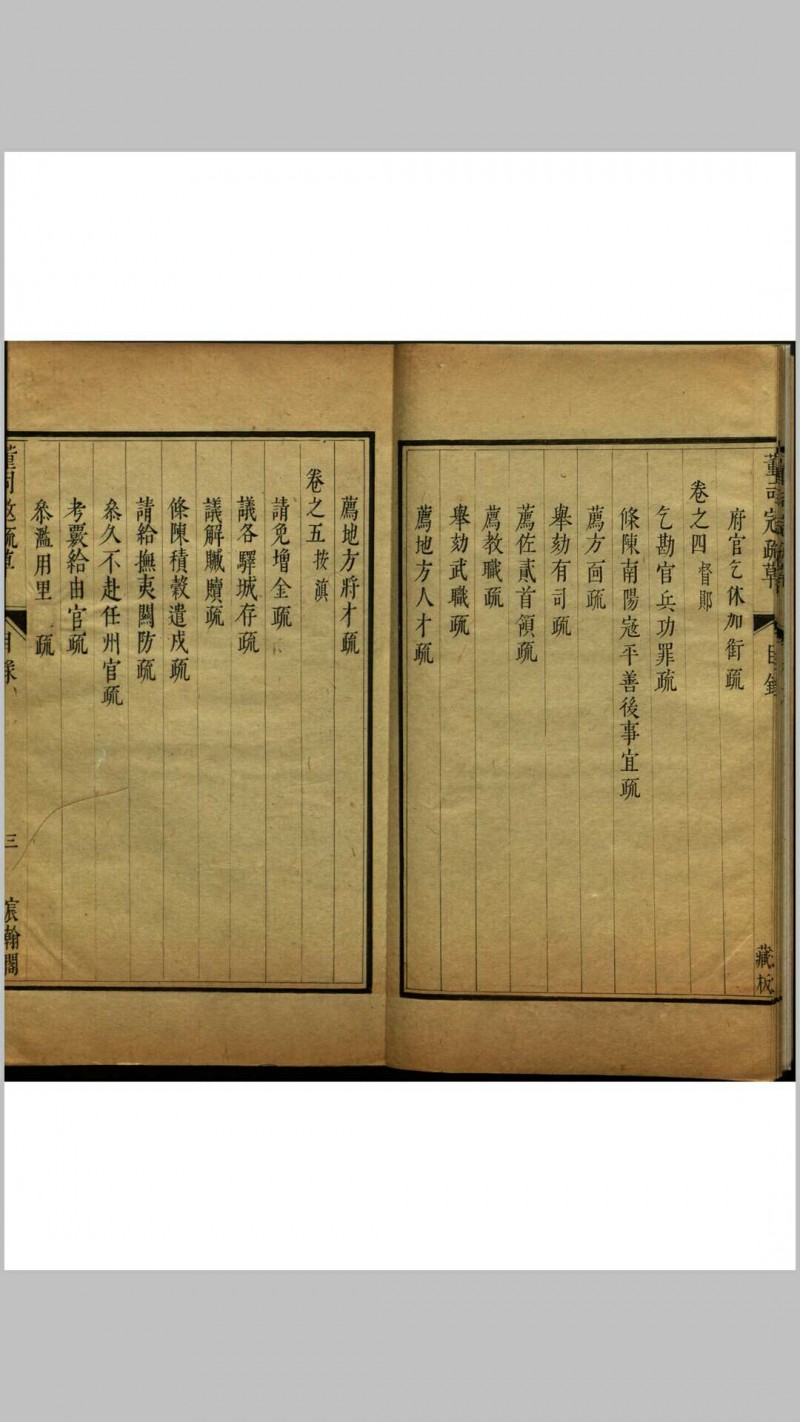 董司寇疏草 目錄 藏板
府官乞休加銜疏
卷之四 督鄖
乞勘官兵功罪疏
條陳南陽寇平善後事宜疏
薦方面疏
舉劾有司疏
薦佐貳首領疏
薦教職疏
舉劾武職疏
薦地方人才疏
薦地方將才疏
卷之五 按滇
請免增金疏
議各驛城存疏
議解贓贖疏
條陳積穀遣戍疏
請給撫夷關防疏
叅久不赴任州官疏
考覈給由官疏
叅濫用里 疏
董司寇疏草 目錄 三 宸翰閣